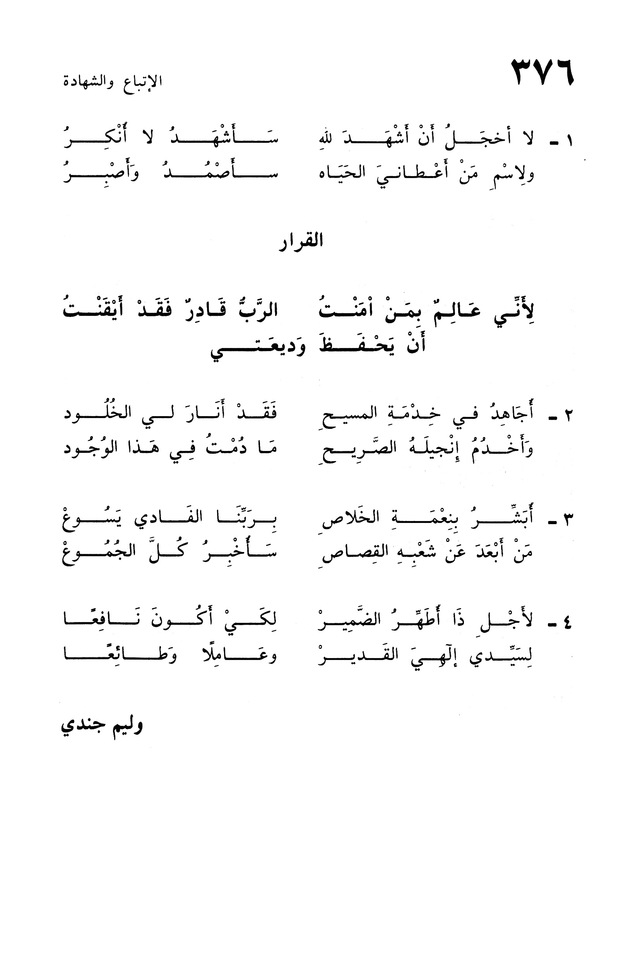 ٣٧٦
الإتباع والشهادة
١ ـ لا أخجَلُ أَنْ أَشْهَدَ للهِ سَأَشْهَدُ لا أُنْكِرُ
ولِاسْمِ مَنْ أَعْطانيَ الحَيَاه سأَصْمُدُ وَأَصْبِرُ
القرار
لِأَنَّي عَالِمٌ بِمَنْ اٰمَنْتُ الرَّبُّ قَادِرٌ فَقَدْ أَيْقَنْتُ
أَنْ يَحْفَظَ وَديعَتي
٢ ـ أُجَاهِدُ في خِدْمَةِ المسيحِ فَقَدْ أَنَارَ لي الخُلُود
وَأَخْدُمُ إنْجيلَهُ الصَّريحِ مَا دُمْتُ فِي هَذا الوُجُود
٣ ـ أُبَشِّرُ بِنِعْمَةِ الخَلاصِ بِرَبِّنَا الفَادي يَسُوعْ
مَنْ أَبْعَدَ عَنْ شَعْبِهِ القِصاصِ سَأُخْبِرُ كُلَّ الجُمُوعْ
٤ ـ لأَجْلِ ذَا أُطَهِّرُ الضَّميرْ لِكَيْ أَكُونَ نَافِعًا
لِسَيِّدي إلَهِيَ القَديرْ وعَامِلًا وَطَائِعًا
وليم جندي